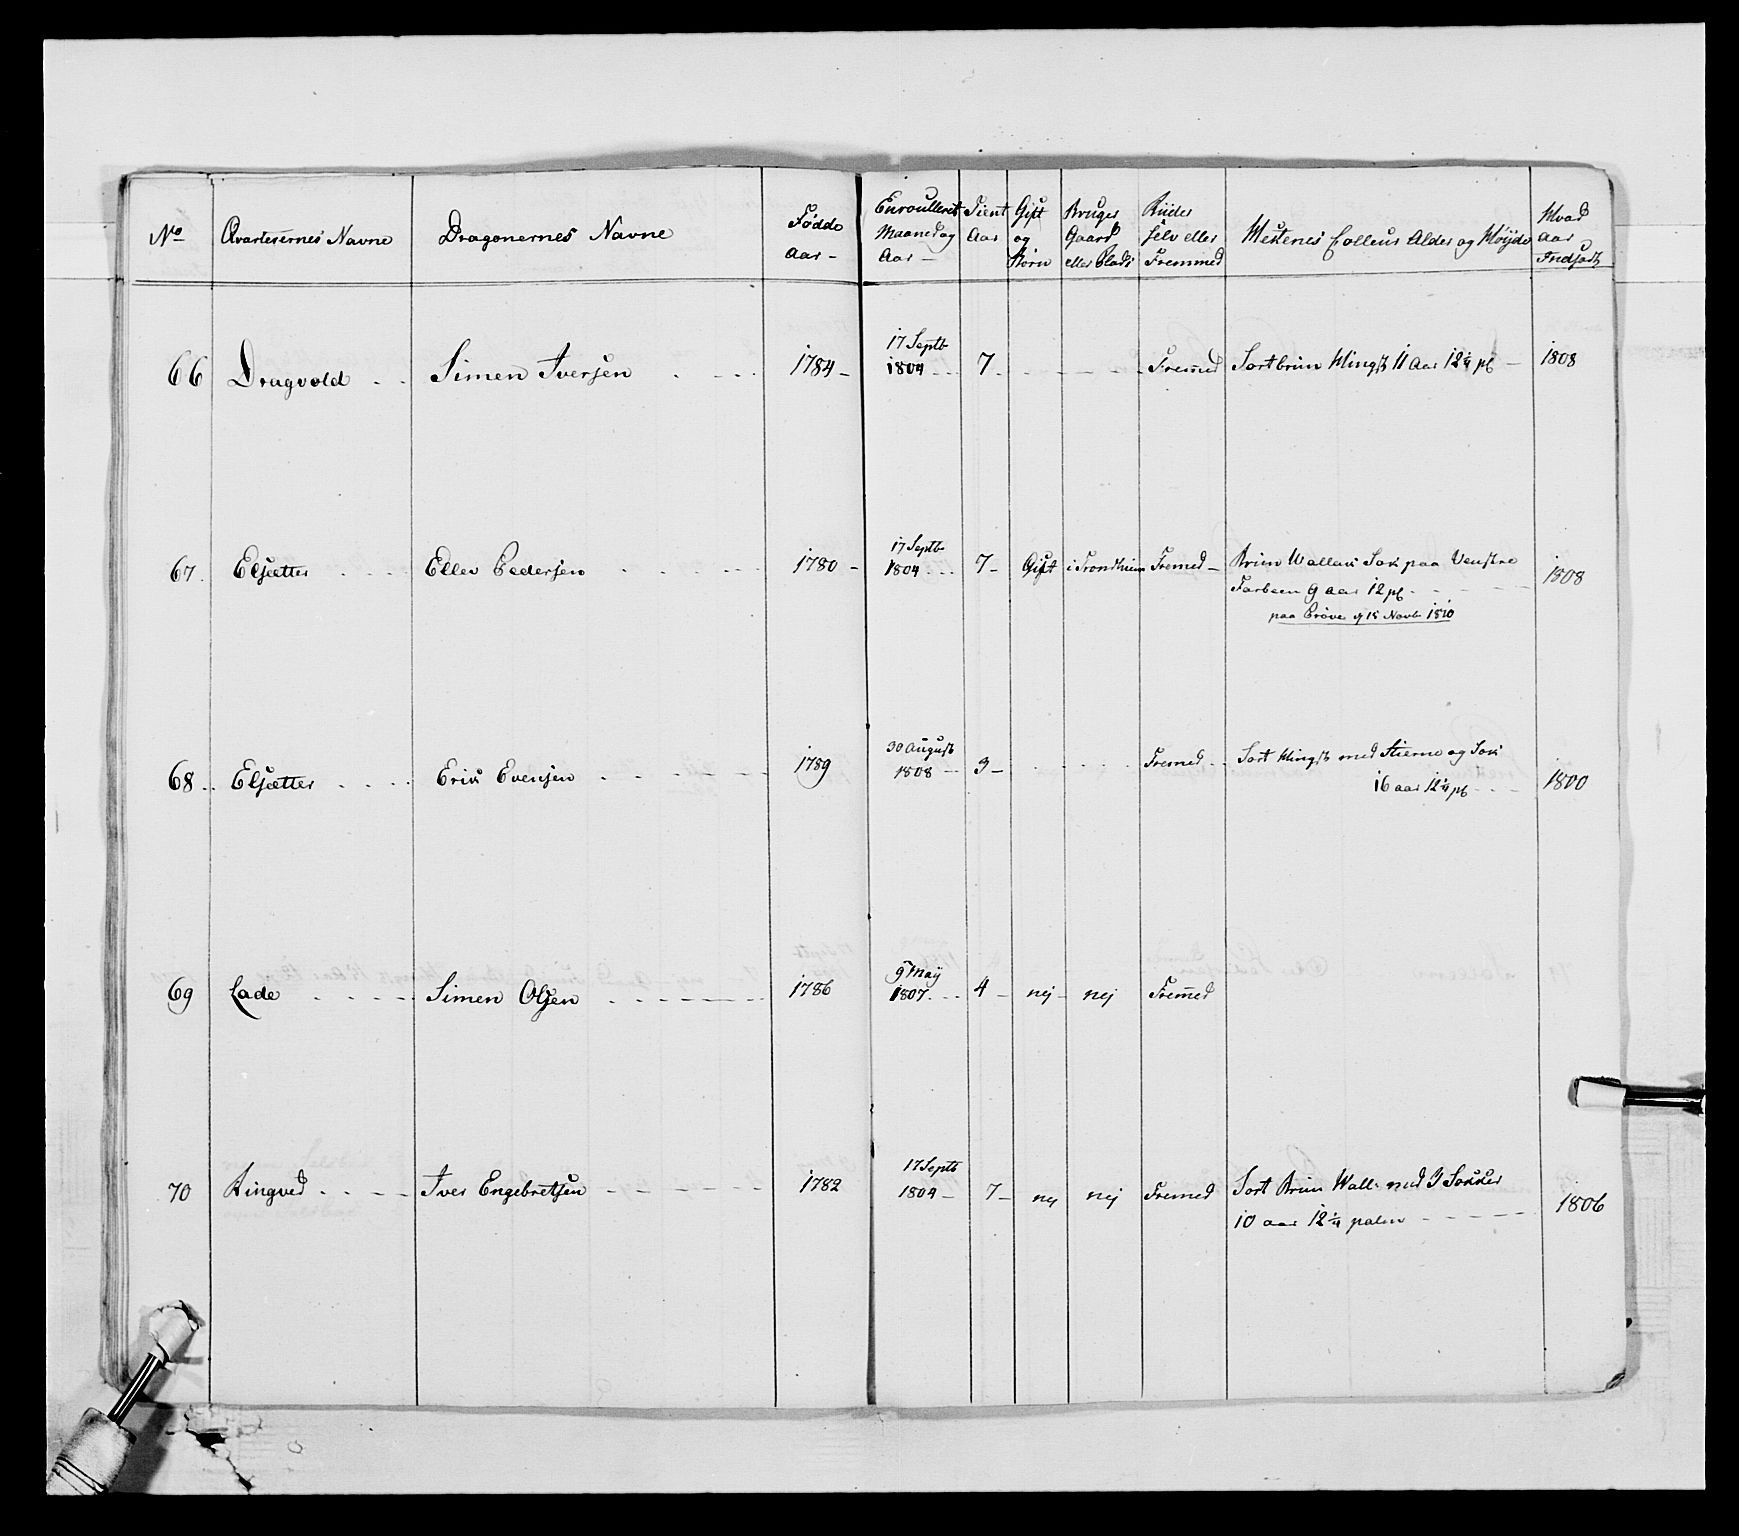 No Qvarterernes Navne Dragonernes Navne Fødde Aar - Enroulleret Maaned og Aar - Tient Aar Gift og Børn Bruger Gaard eller Plads Riider selv eller Fremmed Hestenes Colleur Alder og Høÿde Hvad Aar Indsadt
17 Septb
66 Dragvold . . Simen Iversen . - - - 1784 - 1804 - - - 7 - - - - - - Fremed Sortbrun Hingst 11 Aar 12 1/4 pl - 1808
17 Septb
67. Elsætter . . . . Ellev Pedersen . . . - - 1780 - 1804 - - - 7 - Gift i Trondhiem Fremed - Brun Wallak Sok paa Venstre 1808
Forbeen 9 aar 12 pl - - - - -
paa Prøve d 15 Novb 1810
30 August
68 . . Elsætter . . . . Erik Evensen . - - - - - 1789 1808 - - 3 - . . . . . Fremed - . Sort Hingst med Stierne og Sok
16 aar 12 1/4 pl - - - 1800
9 Maÿ
69 Lade . . . . Simen Olsen . - - - - - - 1786 1807 - - - 4 - nej - nej Fremed
17 Septb
70 Ringved . . - - Iver Engebretsen - - - - - - 1782 1804 - 7 - nej nej Fremed Sort Brun Wall: med 3 Sokker
10 aar 12 1/4 palm - - - - - 1806